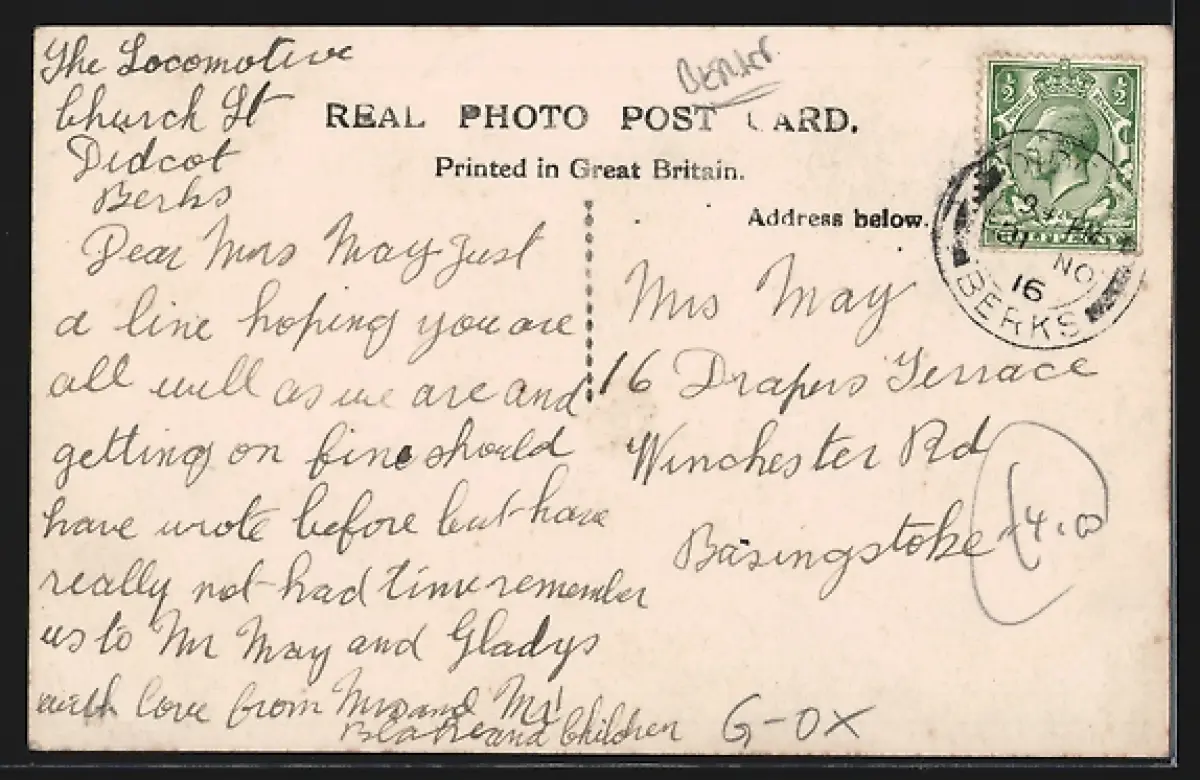 The Locomotive
Church St
Didcot
Berks
Dear Mrs May Just
a line hoping you are
all well as we are and
getting on fine should
have wrote before but have
really not had time remember
us to Mr May and Gladys
with love from Mrs and Mr
and Children
G-OX
REAL PHOTO POST CARD.
Printed in Great Britain.
Address below.
Mrs May
16 Drapers Terrace
Winchester Rd
Basingstoke
½ ½
NO
16
BERKS